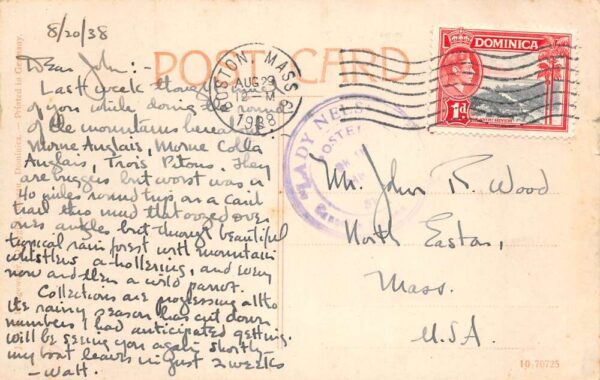 8/20/38
POST CARD
Dear John:-
Last week thought
of you while doing the round
of the mountains hereabout
Morne Anglais, Morne Colla
Anglais, Trois Pitons. They
are buggers but worst was a
40 miles round trip on a
trail thru mud that oozed over
ones ankles but through beautiful
tropical rain forest with mountain
whistlers a-hollering, and every
now and then a wild parrot.
Collections are progressing altho
the rainy season has cut down
numbers I had anticipated getting.
Will be seeing you again shortly
my boat leaves in just 2 weeks
-Walt.
BOSTON, MASS.
AUG 29
12-M
1938
LADY NELSON
DOMINICA
1d.
Mr. John R. Wood
North Easton,
Mass.
U.S.A.
Dominica. - Printed in Germany.
10.70725